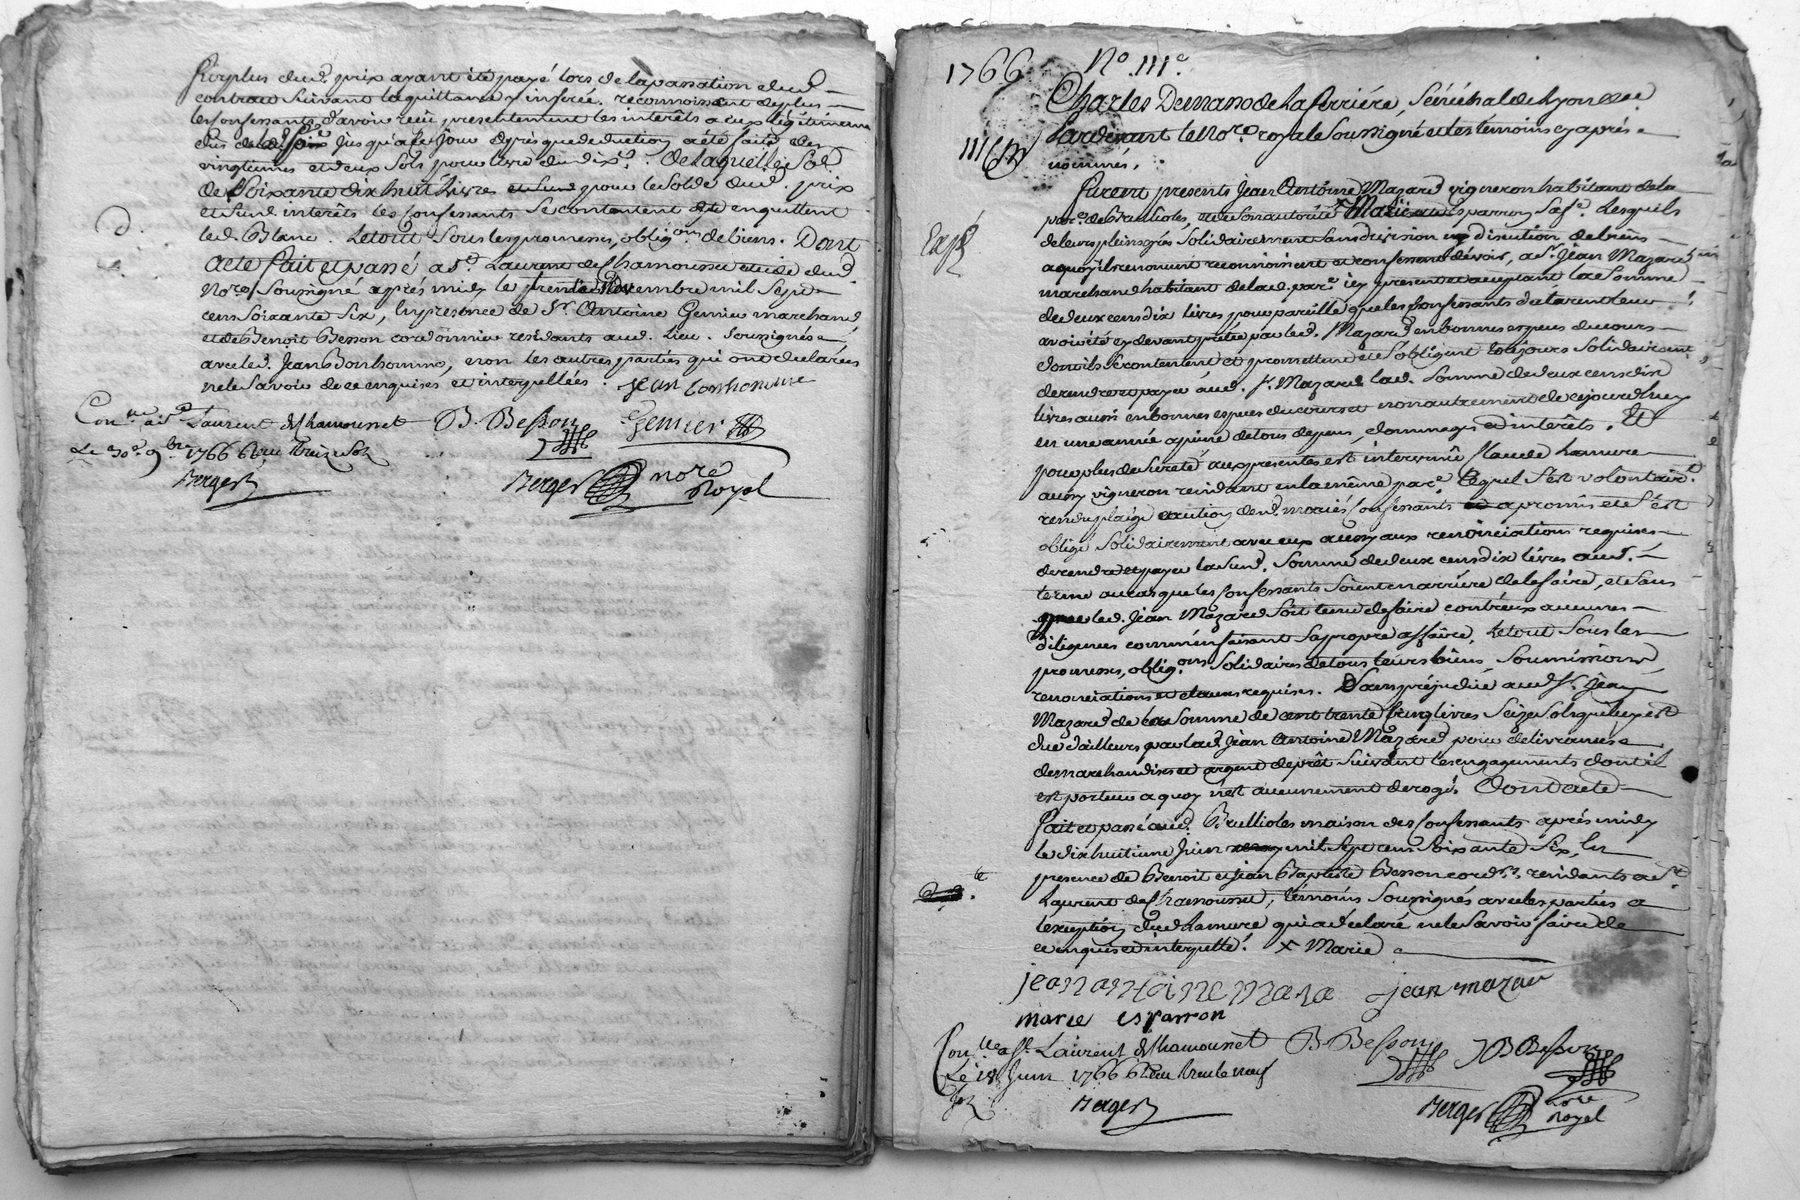 surplus dud. prix ayant été payé lors de la passation dud.
contrat suivant la quittance y inserée. reconnoissent de plus
les confessants d'avoir reçu presentement les interêts a eux légitimement
dus jusqu'a ce jour après que deduction a été faite des
vingtiemes et deux sols pour livre du dix.e de laquelle so.e
de soixante dix huit livres pour le solde dud. prix
et sud. interêts les confessants se contentent et en quittent
led. Blanc. Le tout sous les promesses, oblig.ons de biens. Dont
acte fait et passé a S.t Laurent de Chamousset etude dud.
No.re soussigné après midy le premier Novembre mil sept
cens soixante six, En presence de S.r Antoine Genier marchand
et de Benoit Besson cordonnier residants aud. lieu. soussignés
avec led. Jean Bonhomme, et non les autres parties qui ont déclarées
ne le savoir de ce enquises et interpellées. Jean bonhomme
Con.lle a S.t Laurent de Chamousset B. Besson Genier
Le 30.e 9.bre 1766 Reçu treize sols
Berger Berger no.re
Royal
1766 N.o 111.e
Charles Demasso de la Ferriére, Sénéchal de Lyon
Pardevant le No.re royal soussigné et les témoins cy après
111
nommés.
furent presents Jean Antoine Mazard vigneron habitant de la
par.e de Brullioles, et de son autorité x Esparron sa fe. Lesquels
de leurs pleins grés, solidairement sans division ny discution de biens
Exp.é
a quoy ils renoncent reconnoissent et confessent devoir, a S.r Jean Mazard
marchand habitant de lad. par.e icy present et acceptant la somme
de deux cens dix livres pour pareille que les confessants declarent leur
avoir été cy devant prétée par led. Mazard en bonnes especes du cours
dont ils se contentent et promettent et s'obligent toujours solidairem.t
de rendre et payer aud. S.r Mazard lad. somme de deux cens dix
livres aussi en bonnes especes du cours et non autrement de ce jourd'huy
en une année a peine de tous depens, dommages et interêts. Et
pour plus de sureté aux presentes est intervenu Claude Lamure
aussy vigneron residant en la même par.e lequel s'est volontair.t
rendu plaige caution desd. mariés confessants a promis et s'est
obligé solidairement avec eux aussy aux renonciation requises
de rendre et payer la sud. somme de deux cens dix livres aud.
terme au cas que les confessants soient en arriére de le faire, et sans
que led. Jean Mazard soit tenu de faire contr'eux aucunes
diligences comme en faisant sa propre affaire. Le tout sous les
promesses, oblig.ons solidaires de tous leurs biens, soumissions,
renonciations et clauses requises. Sans préjudice aud. S.r Jean
Mazard de la somme de cent trente cinq livres seize sols qui luy est
due d'ailleurs par led. Jean Antoine Mazard pour delivrances
de marchandises et argent de prêt suivant les engagements dont il
est porteur a quoy n'est aucunement derogé. Dont acte
fait et passé aud. Brullioles maison des confessants après midy
le dix huitieme Juin mil sept cens soixante six, En
presence de Benoit et Jean Baptiste Besson cord.rs residants a S.t
Laurent de Chamousset, témoins soussignés avec les parties a
l'exception dud. Lamure qui a déclaré ne le savoir faire de
ce enquis et interpellé. x Marie
jean antoine mazar jean mazar
marie esparron
Con.lle a S.t Laurent de Chamousset B. Besson JB Besson
Le 18 Juin 1766 Reçu trente neuf
sols Berger Berger no.re
Royal